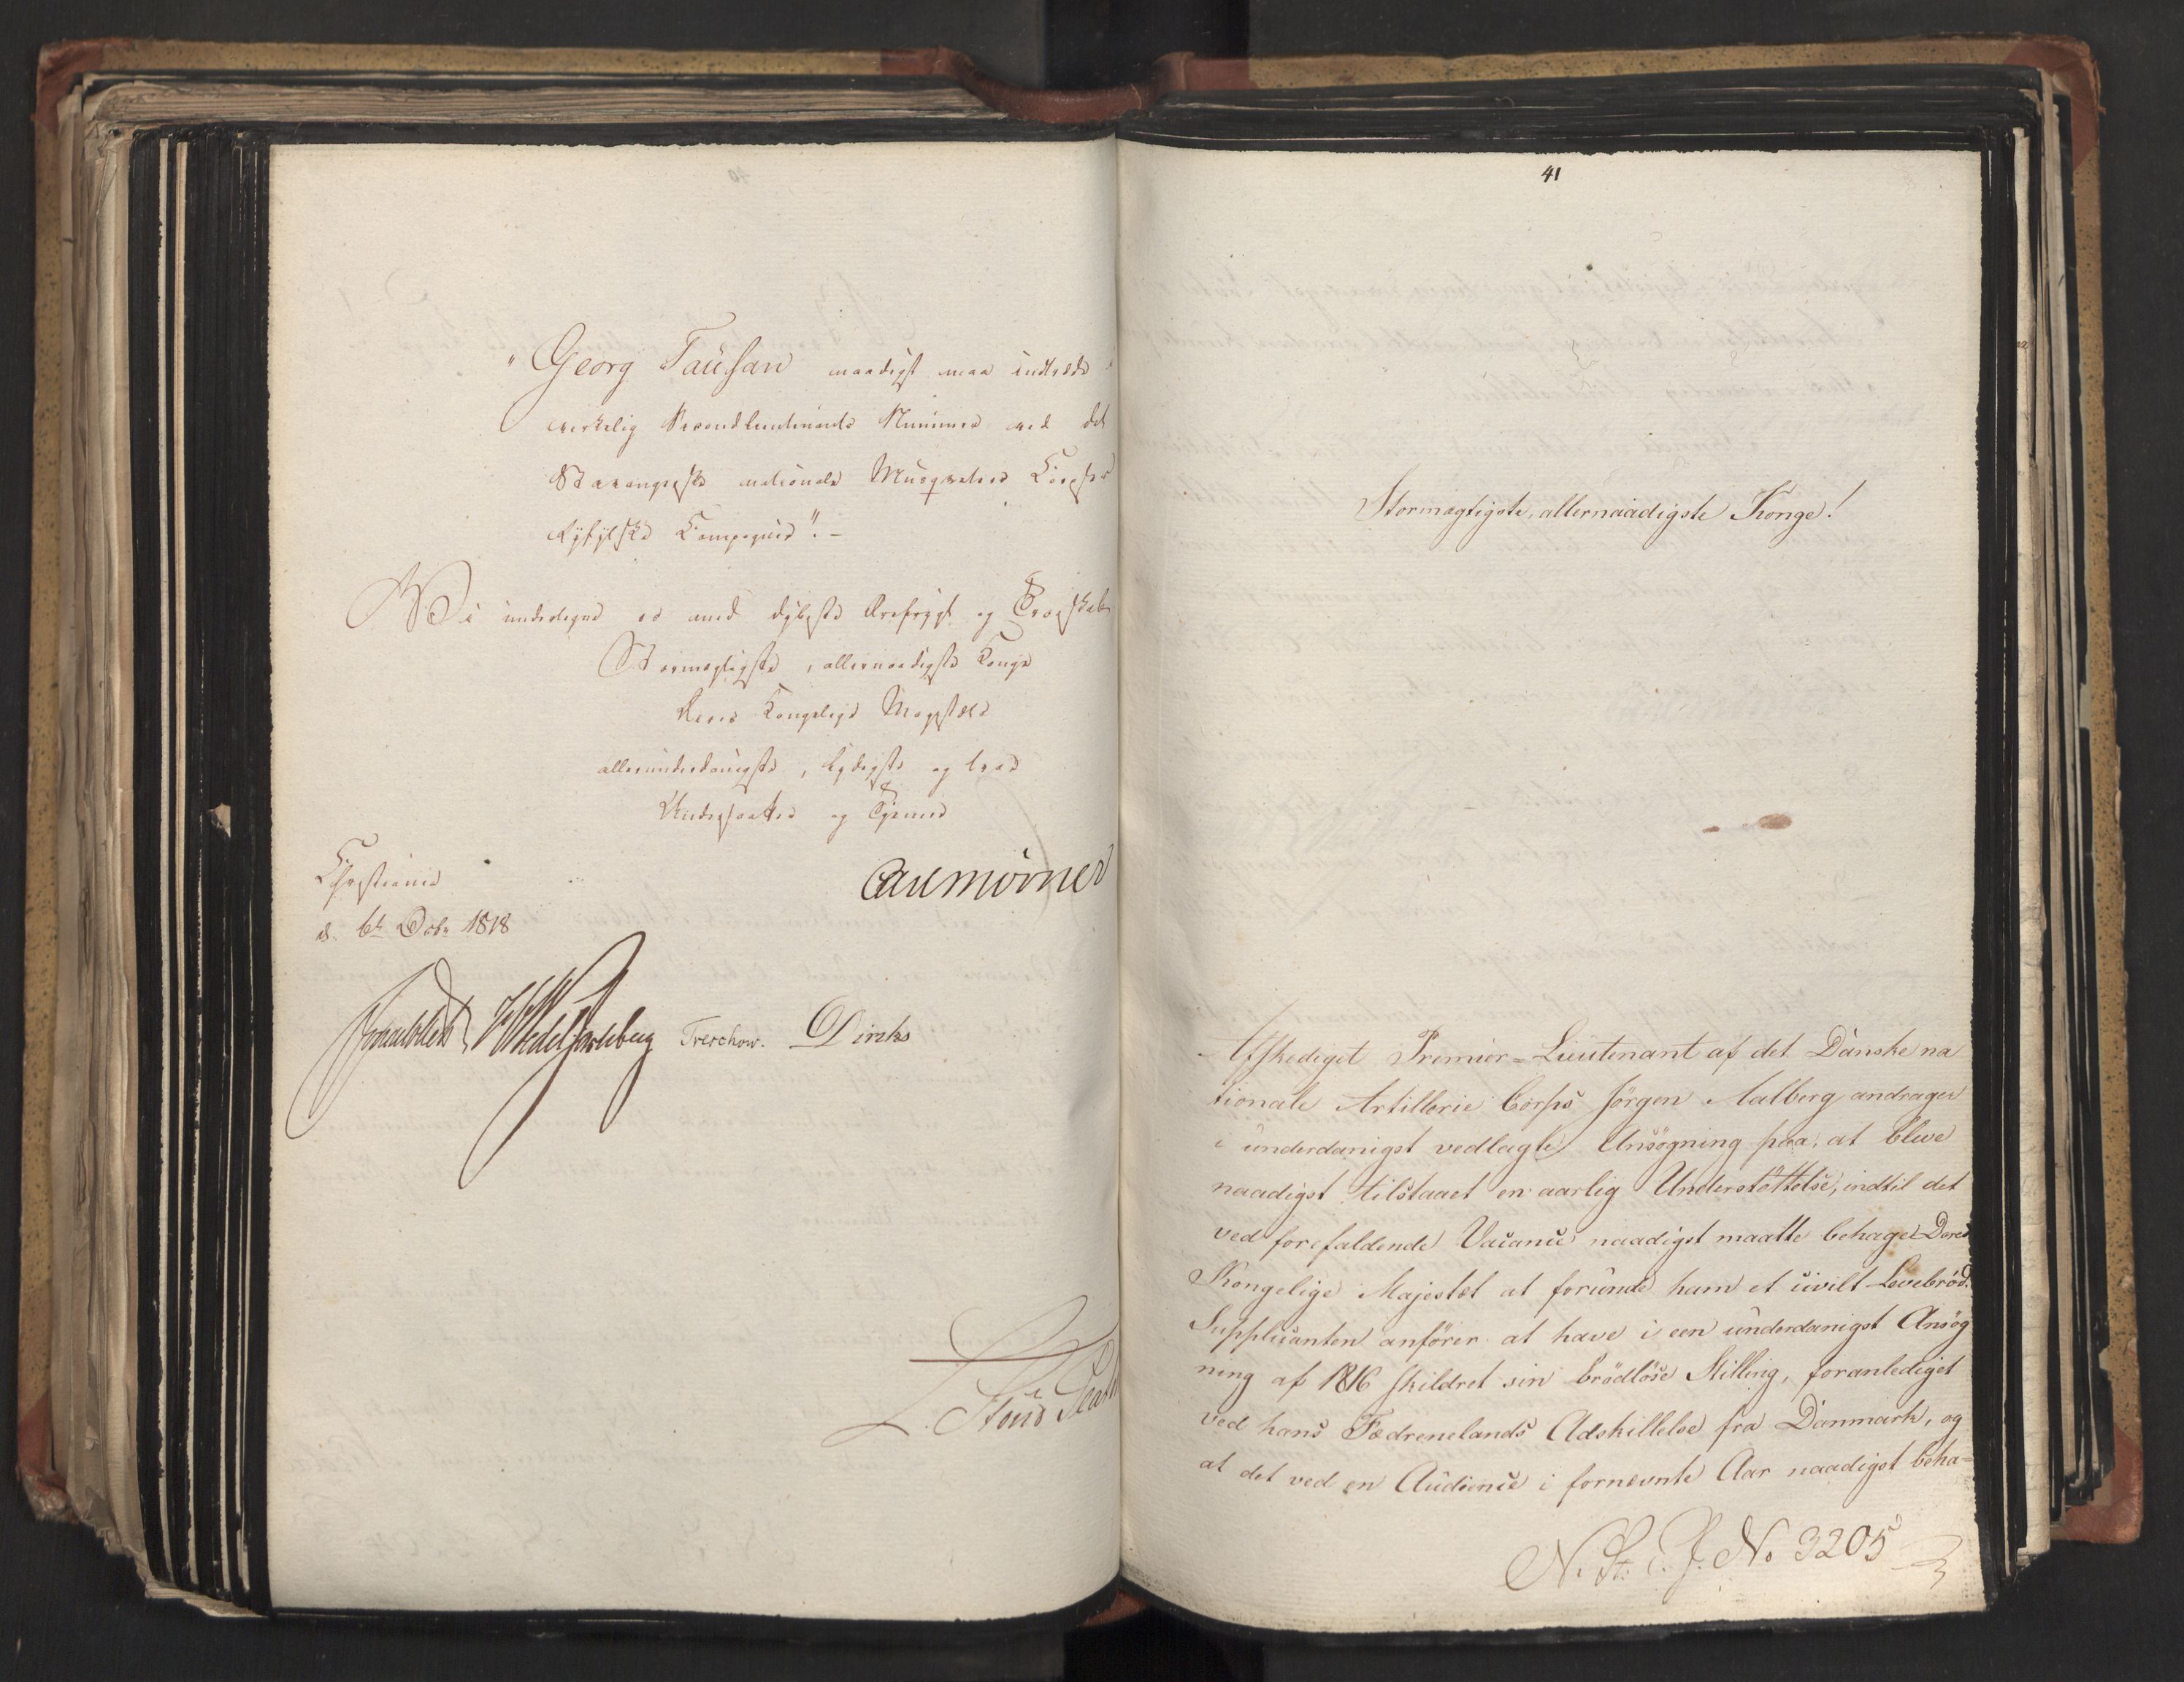 "Georg Tausan naadigst maa indtræde i
virkelig Secondlieutenants Nummer ved det
Stavangerske nationale Musqveteer Corpses
Ryfylske Compagnie". -
Vi undertegne os med dybeste Ærefrygt og Troeskab
Stormægtigste, allernaadigste Konge
Deres Kongelige Majestæts
allerunderdanigste, lydigste og troe
Undersaatter og Tjenere
Christiania
d. 6te Octbr 1818
Carl Mörner
Sommerhielm WedelJarlsberg Treschow. Diriks
L. Stoud Platou
41
Stormægtigste, allernaadigste Konge!
Afskediget Premier=Lieutenant af det Danske na
tionale Artillerie Corps Jörgen Aalberg andrager
i underdanigst vedlagte Ansögning paa, at blive
naadigst tilstaaet en aarlig Understöttelse, indtil det
ved forefaldende Vacance naadigst maatte behage Deres
Kongelige Majestet at forunde ham et civilt Levebröd.
Supplicanten anförer at have i een underdanigst Ansög
ning af 1816 skildret sin brödlöse Stilling, foranlediget
ved hans Fædrenelands Adskillelse fra Danmark, og
at det ved en Audience i fornævnte Aar naadigst beha=
N. St. E. J. No 3205